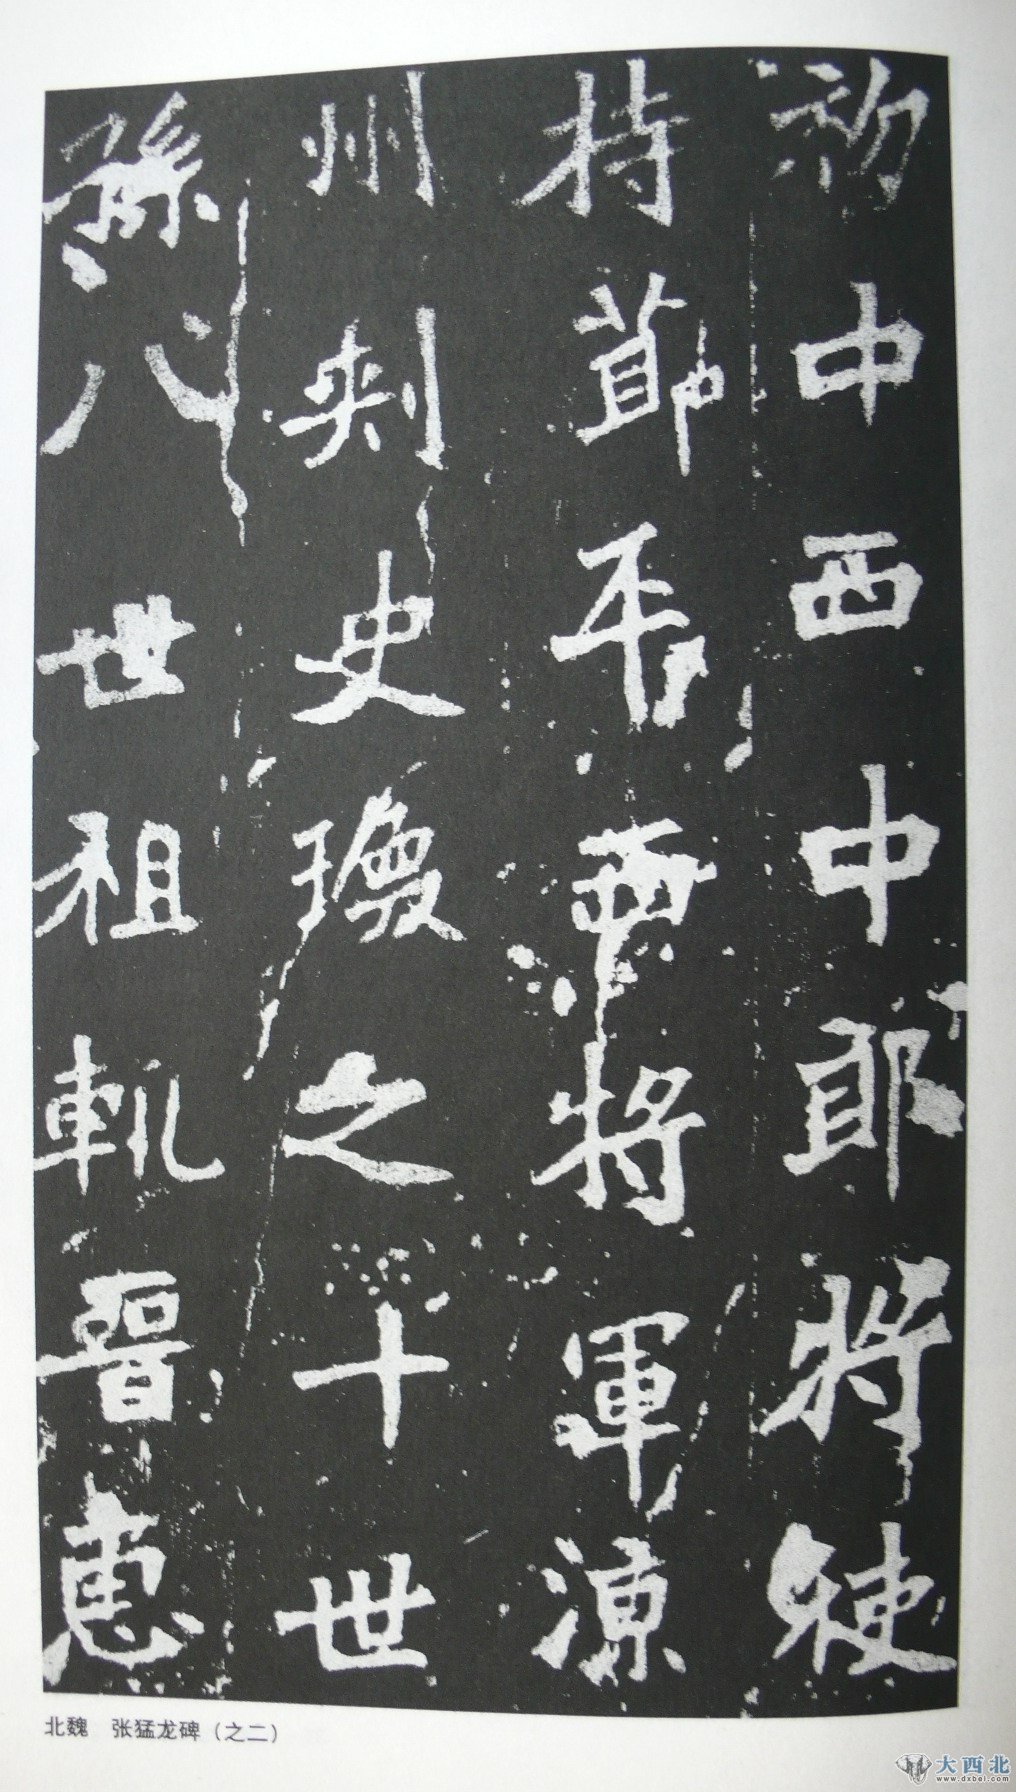 初中西中郎將使
持節平西將軍涼
州刺史瑍之十世
孫八世祖軌晉惠
北魏 张猛龙碑（之二）
大西北
www.dxbei.com